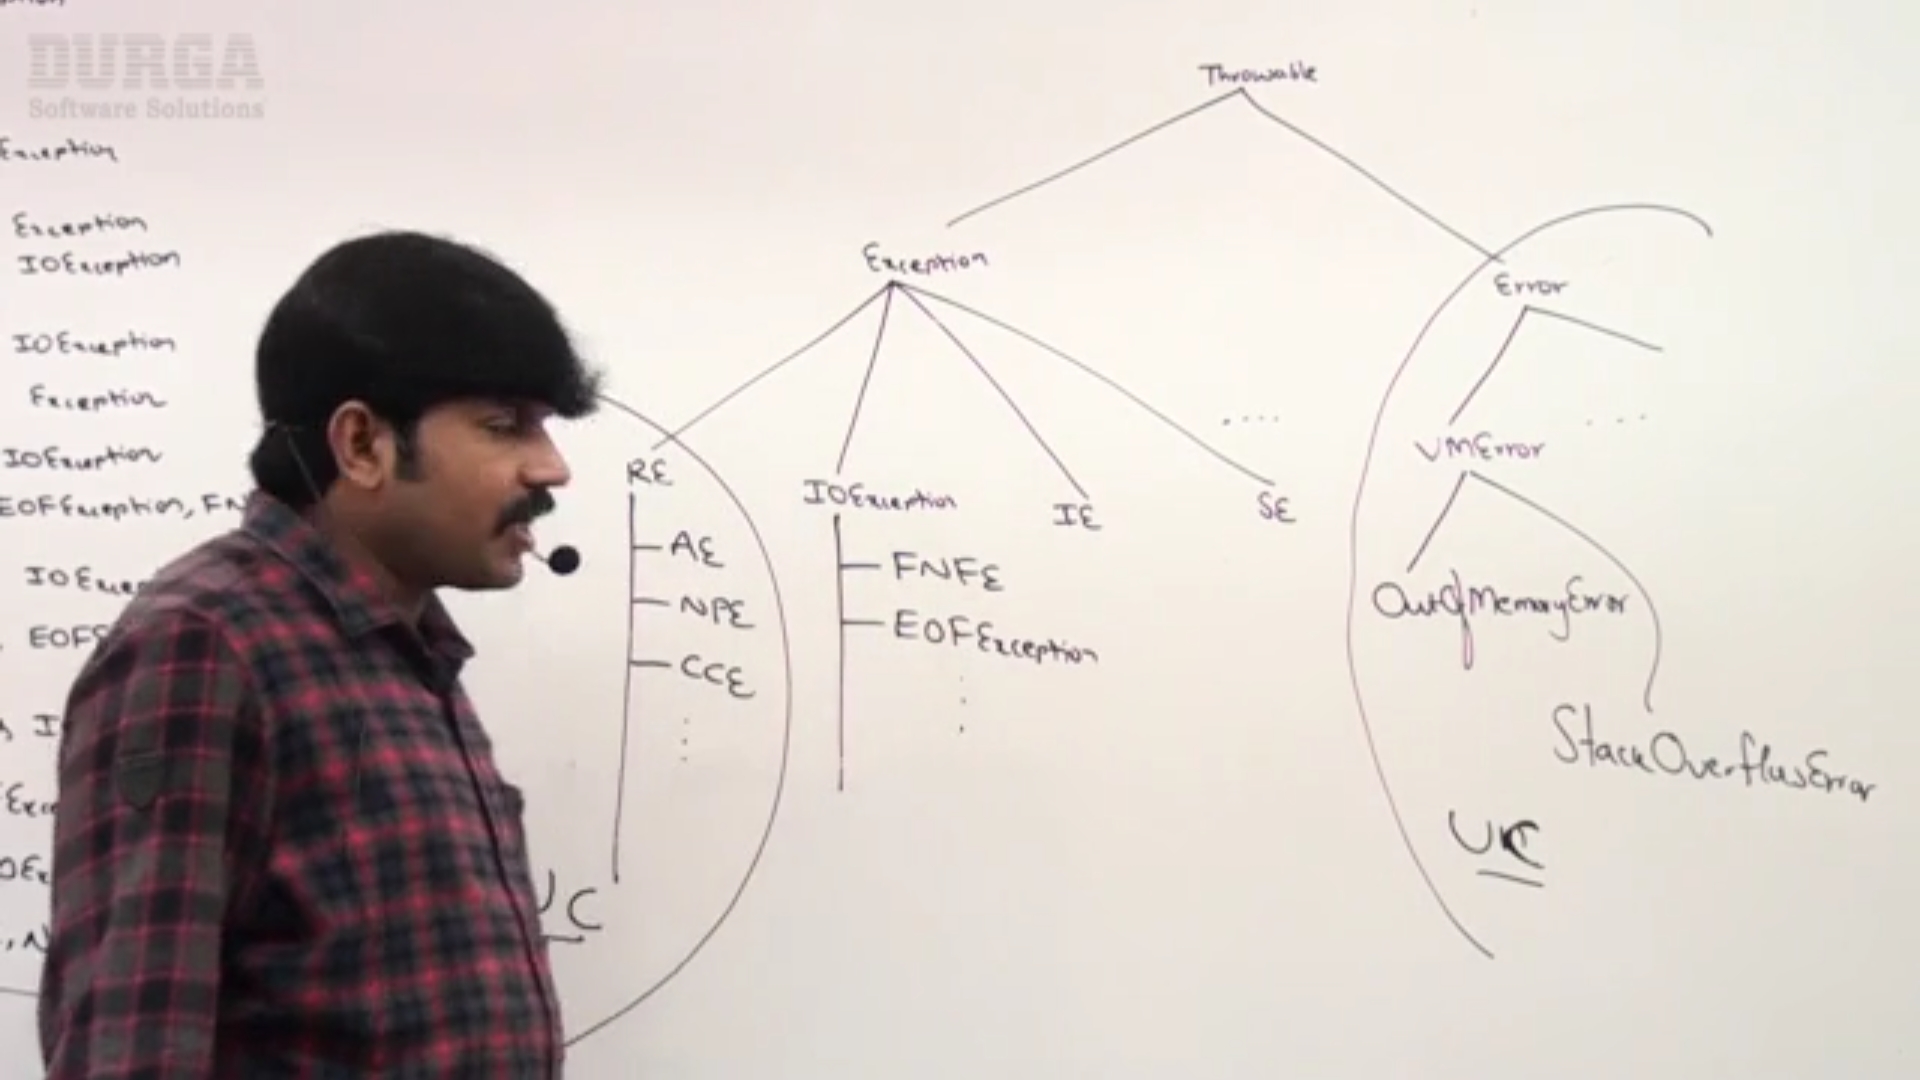 DURGA
Software Solutions
Exception
Exception
IOException
IOException
Exception
IOException
EOFException, FN
IOExce
EOF
, I
Exce
OEx
, N
Throwable
Exception
Error
RE
AE
NPE
CCE
UC
IOException
FNFE
EOFException
IE
SE
....
VMError
...
OutOfMemoryError
StackOverflowError
UC